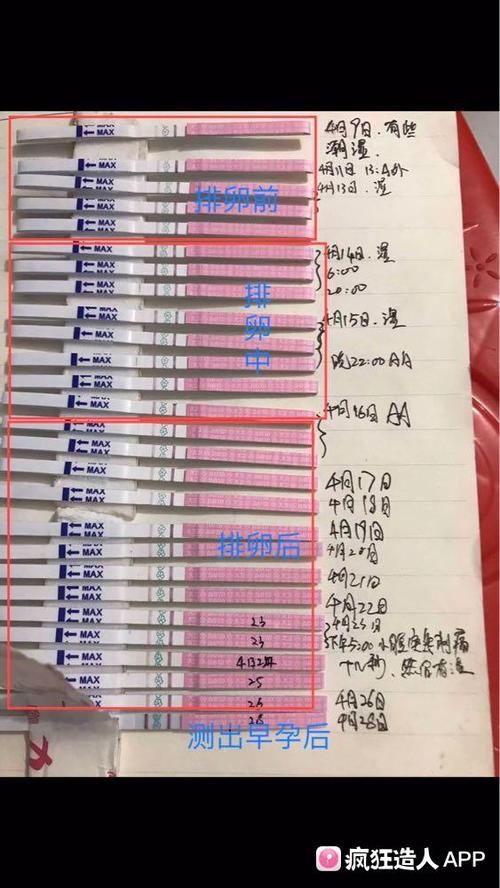 MAX
MAX
4月9日.有些
潮湿.
MAX
4月11日
MAX
4月13日.湿
MAX
排卵前
MAX
MAX
4月14日.湿
MAX
6:00
MAX
20:00
排卵中
MAX
4月15日.湿
MAX
MAX
晚22:00 AA
MAX
MAX
4月16日 AA
MAX
MAX
MAX
4月17日
MAX
4月18日
MAX
4月19日
排卵后
MAX
4月20日
MAX
4月21日
MAX
4月22日
MAX
23
4月23日
MAX
23
下午5:00 小腹突然刺痛
MAX
十几秒.
MAX
25
26
4月26日
28
4月28日
测出早孕后
疯狂造人 APP